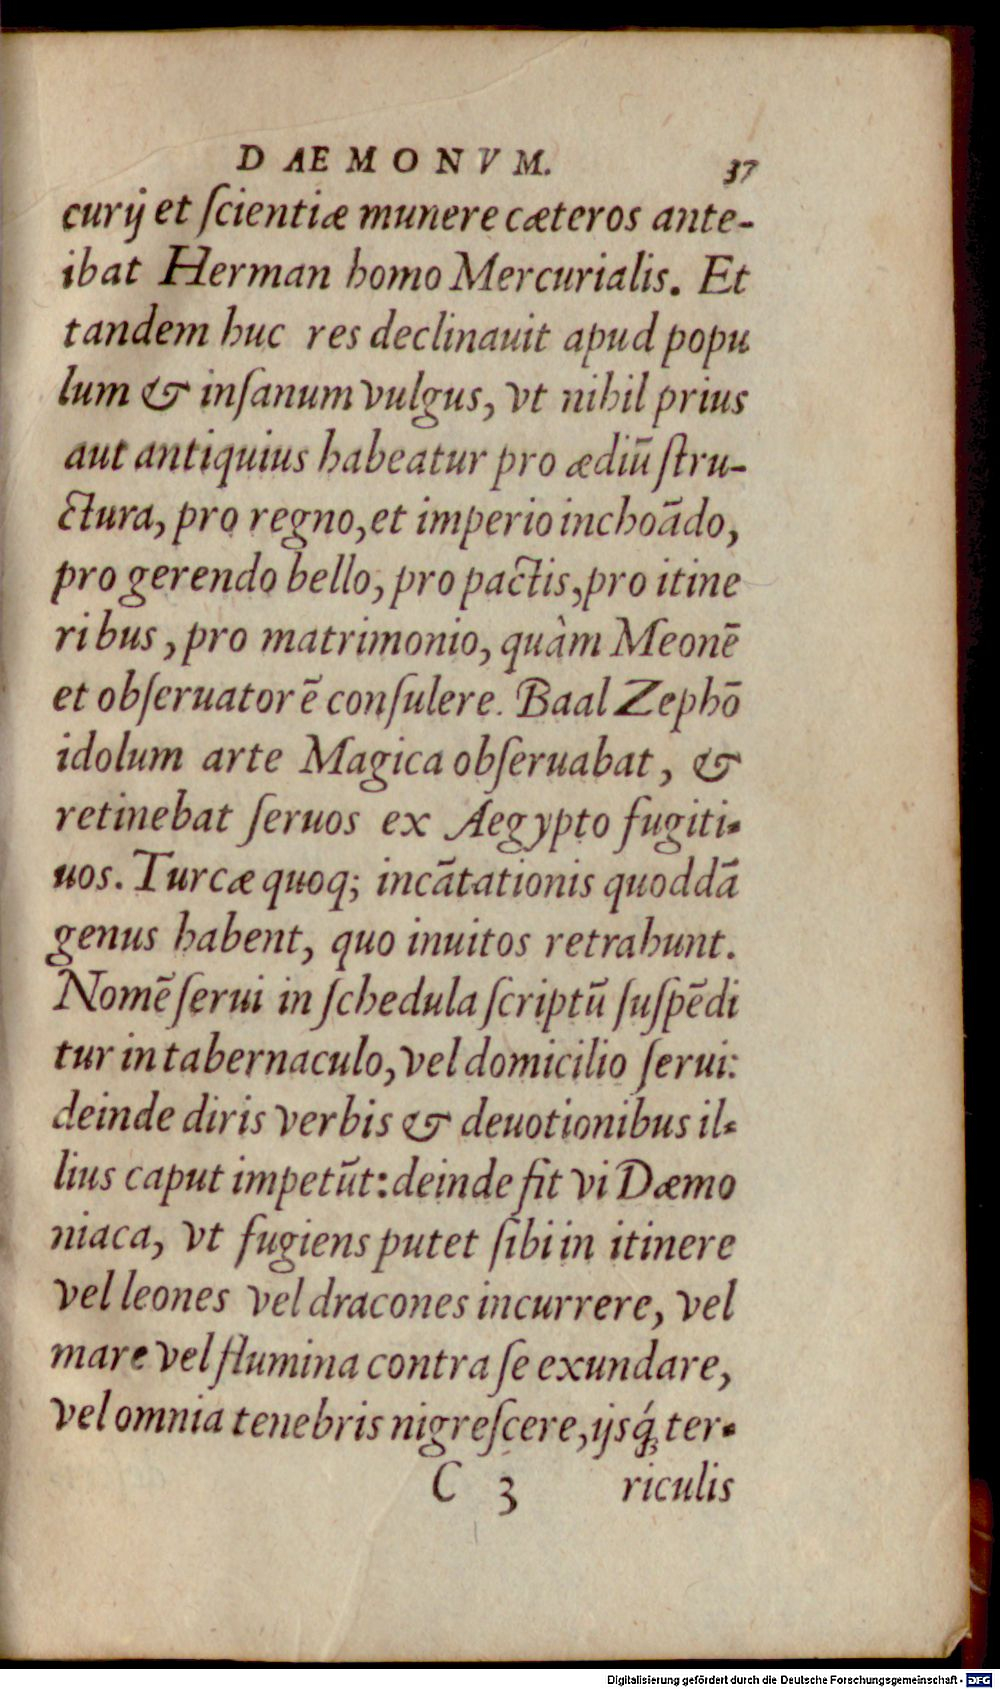 DAEMONVM. 37
curĳ et ſcientiæ munere cæteros ante-
ibat Herman homo Mercurialis. Et
tandem huc res declinauit apud popu
lum & inſanum vulgus, vt nihil prius
aut antiquius habeatur pro ædiū ſtru-
ctura, pro regno, et imperio inchoādo,
pro gerendo bello, pro pactis, pro itine
ribus, pro matrimonio, quàm Meonē
et obſeruatorē conſulere. Baal Zephō
idolum arte Magica obſeruabat, &
retinebat ſeruos ex Aegypto fugiti-
uos. Turcæ quoq; incātationis quoddā
genus habent, quo inuitos retrahunt.
Nomē ſerui in ſchedula ſcriptū ſuſpēdi
tur in tabernaculo, vel domicilio ſerui:
deinde diris verbis & deuotionibus il-
lius caput impetūt: deinde fit vi Dæmo
niaca, vt fugiens putet ſibi in itinere
vel leones vel dracones incurrere, vel
mare vel flumina contra ſe exundare,
vel omnia tenebris nigreſcere, ĳsq́; ter-
C 3 riculis
Digitalisierung gefördert durch die Deutsche Forschungsgemeinschaft - DFG